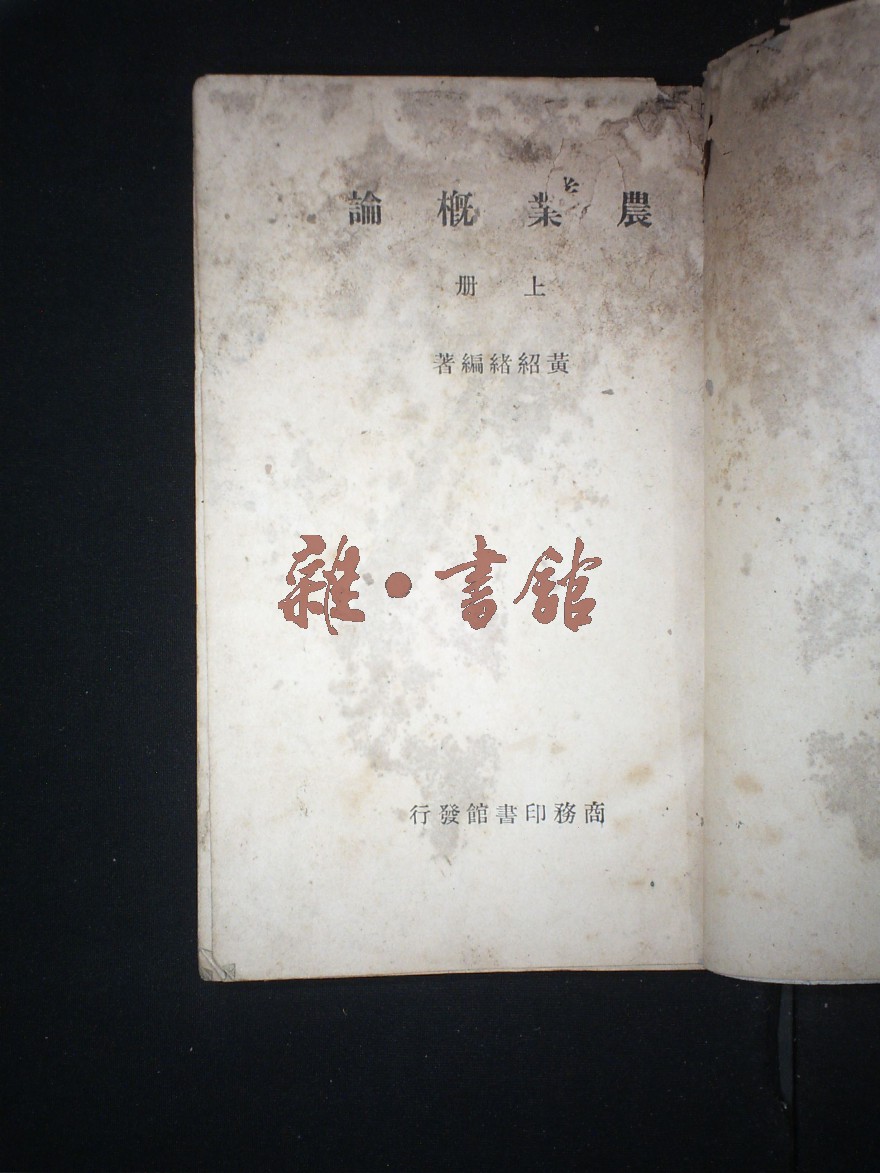 農業概論
上册
黃紹緒編著
雜•書館
商務印書館發行